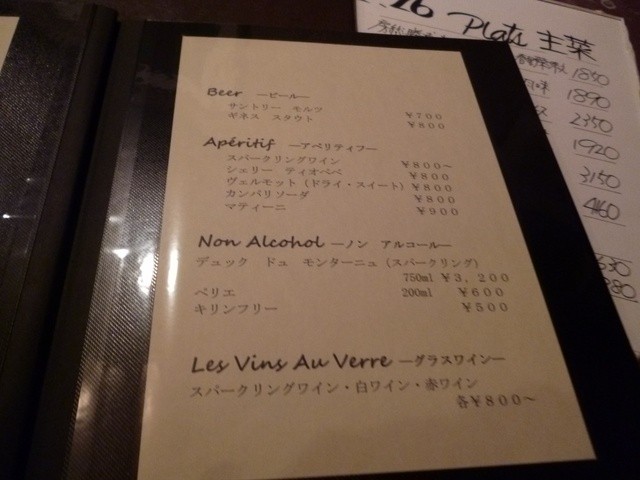 Beer —ビール—
サントリー モルツ ¥700
ギネス スタウト ¥800
Apéritif —アペリティフ—
スパークリングワイン ¥800~
シェリー ティオペペ ¥800
ヴェルモット(ドライ・スイート) ¥800
カンパリソーダ ¥800
マティーニ ¥900
Non Alcohol —ノン アルコール—
デュック ドゥ モンターニュ(スパークリング)
750ml ¥3,200
ペリエ 200ml ¥600
キリンフリー ¥500
Les Vins Au Verre —グラスワイン—
スパークリングワイン・白ワイン・赤ワイン
各¥800~
Plats 主菜
1850
1890
2350
1920
3150
4160